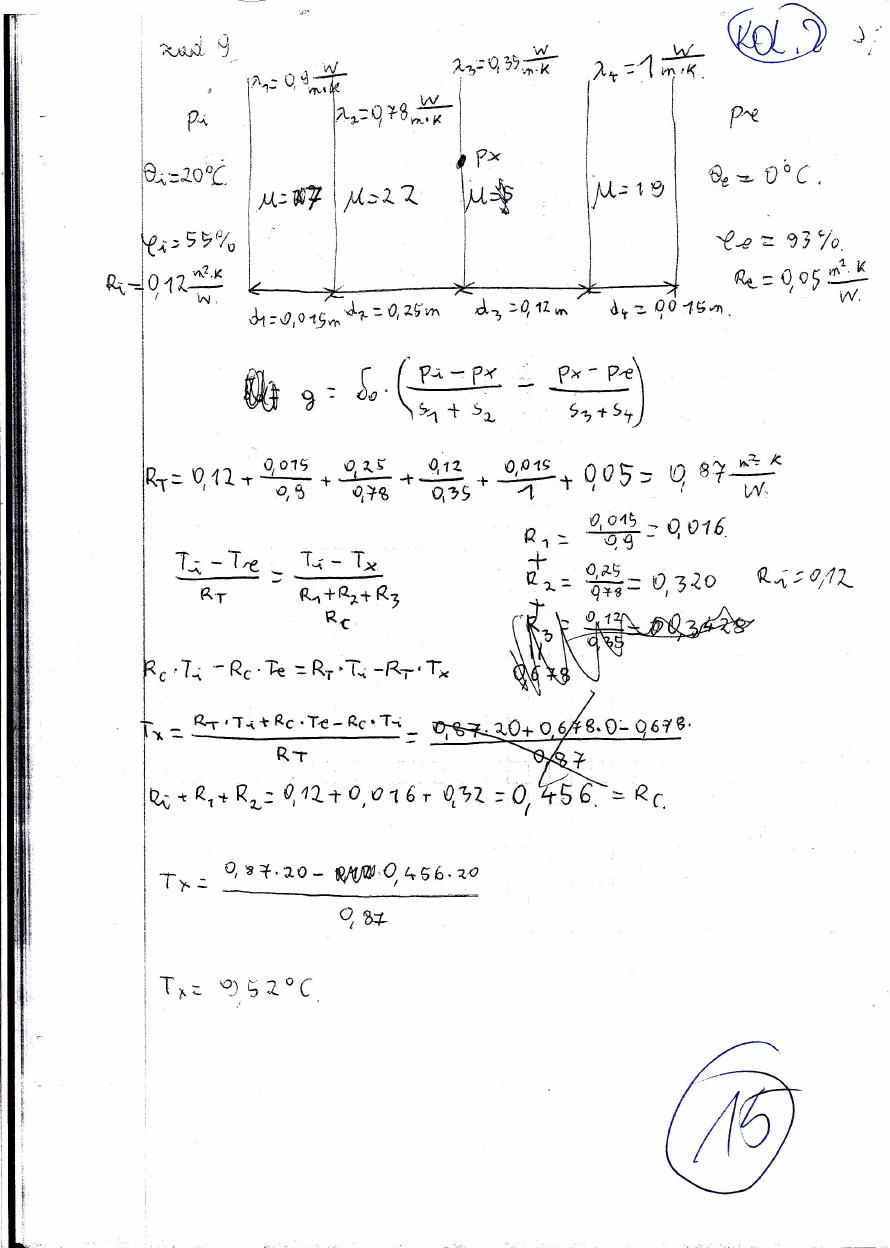 zad 9
KOL. 2
λ1=0,9 W/m·K
λ2=0,78 W/m·K
λ3=0,35 W/m·K
λ4=1 W/m·K.
pi
pe
px
θi=20°C.
θe = 0°C.
μ=7
μ=22
μ=5
μ=19
φi=55%
φe = 93%.
Ri=0,12 m²·K/W.
Re=0,05 m²·K/W.
d1=0,015m
d2=0,25m
d3=0,12m
d4=0,015m.
g = δ0·((pi-px)/(S1+S2) - (px-pe)/(S3+S4))
RT=0,12+0,015/0,9+0,25/0,78+0,12/0,35+0,015/1+0,05=0,87 m²·K/W.
(Ti-Te)/RT = (Ti-Tx)/(R1+R2+R3)
Rc
R1=0,015/0,9=0,016.
+
R2=0,25/0,78=0,320
Ri=0,12
+
R3=0,12/0,35
0,678
Rc·Ti-Rc·Te=RT·Ti-RT·Tx
Tx=(RT·Ti+Rc·Te-Rc·Ti)/RT=(0,87·20+0,678·0-0,678·)/0,87
Ri+R1+R2=0,12+0,016+0,32=0,456.=Rc.
Tx=(0,87·20-0,456·20)/0,87
Tx=9,52°C.
15